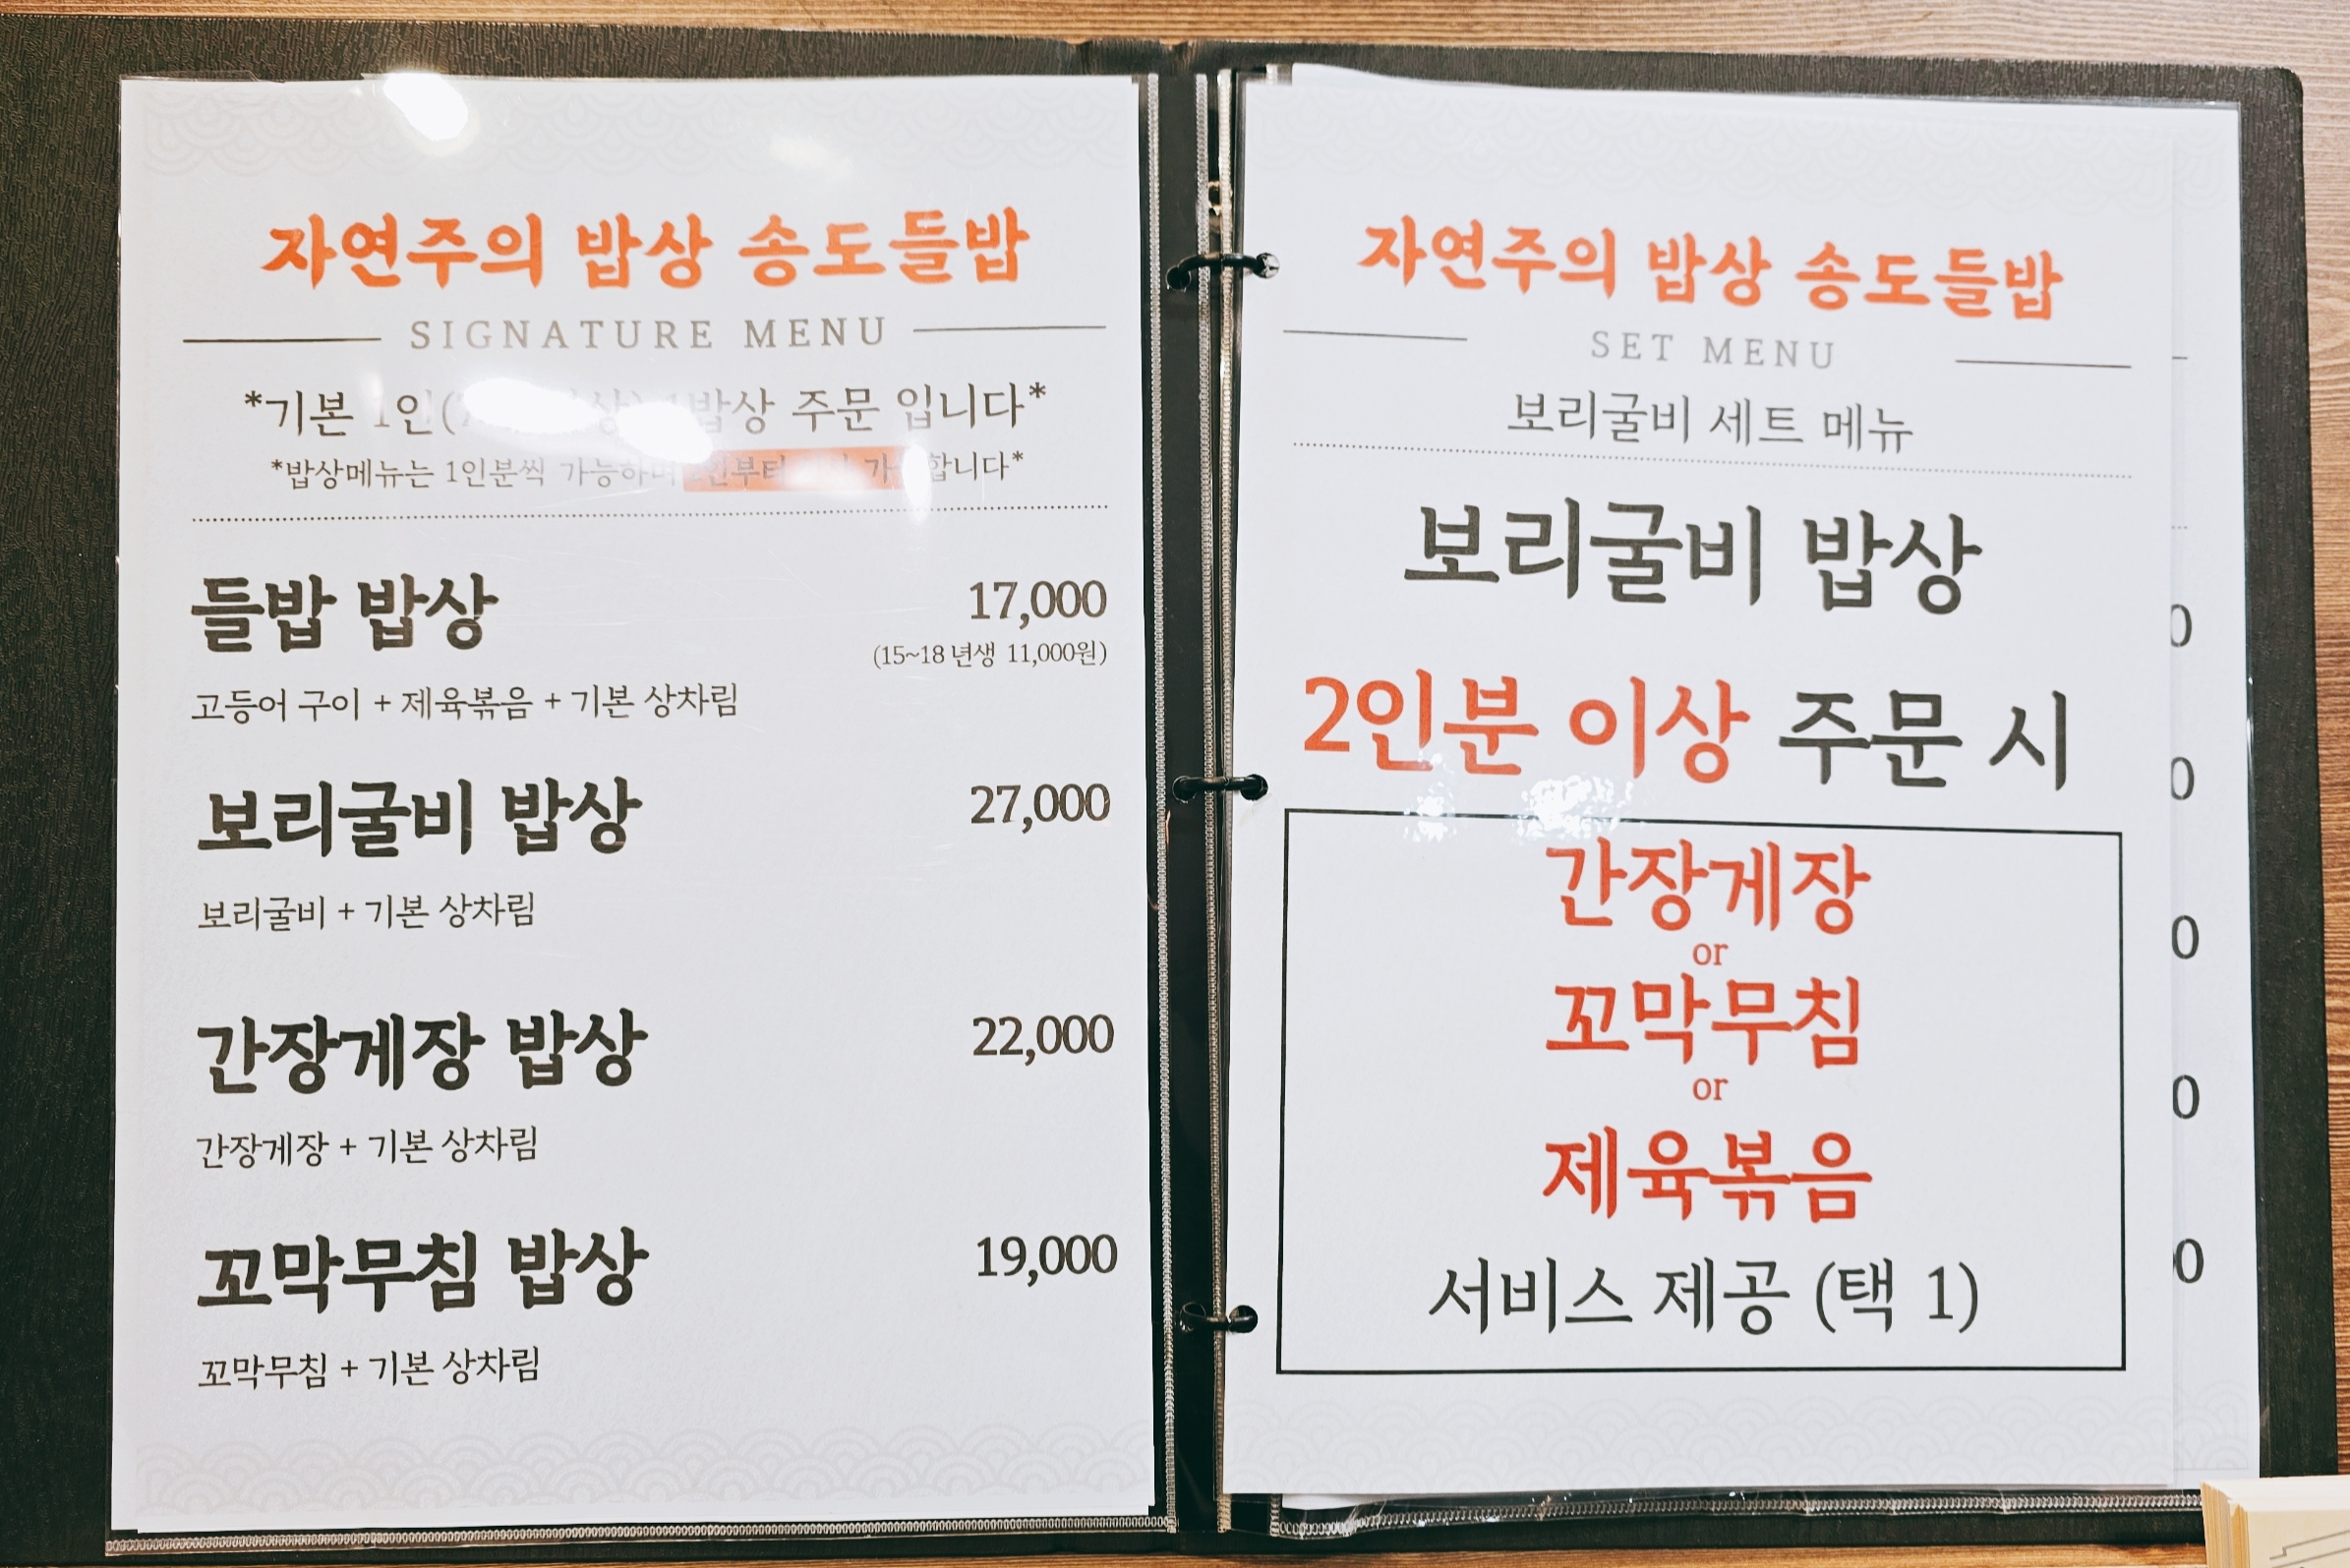 자연주의 밥상 송도들밥
SIGNATURE MENU
*기본 1인( 밥상 주문 입니다*
*밥상메뉴는 1인분씩 가능하며 합니다*
들밥 밥상 17,000
(15~18년생 11,000원)
고등어 구이 + 제육볶음 + 기본 상차림
보리굴비 밥상 27,000
보리굴비 + 기본 상차림
간장게장 밥상 22,000
간장게장 + 기본 상차림
꼬막무침 밥상 19,000
꼬막무침 + 기본 상차림
자연주의 밥상 송도들밥
SET MENU
보리굴비 세트 메뉴
보리굴비 밥상
2인분 이상 주문 시
간장게장
or
꼬막무침
or
제육볶음
서비스 제공 (택 1)